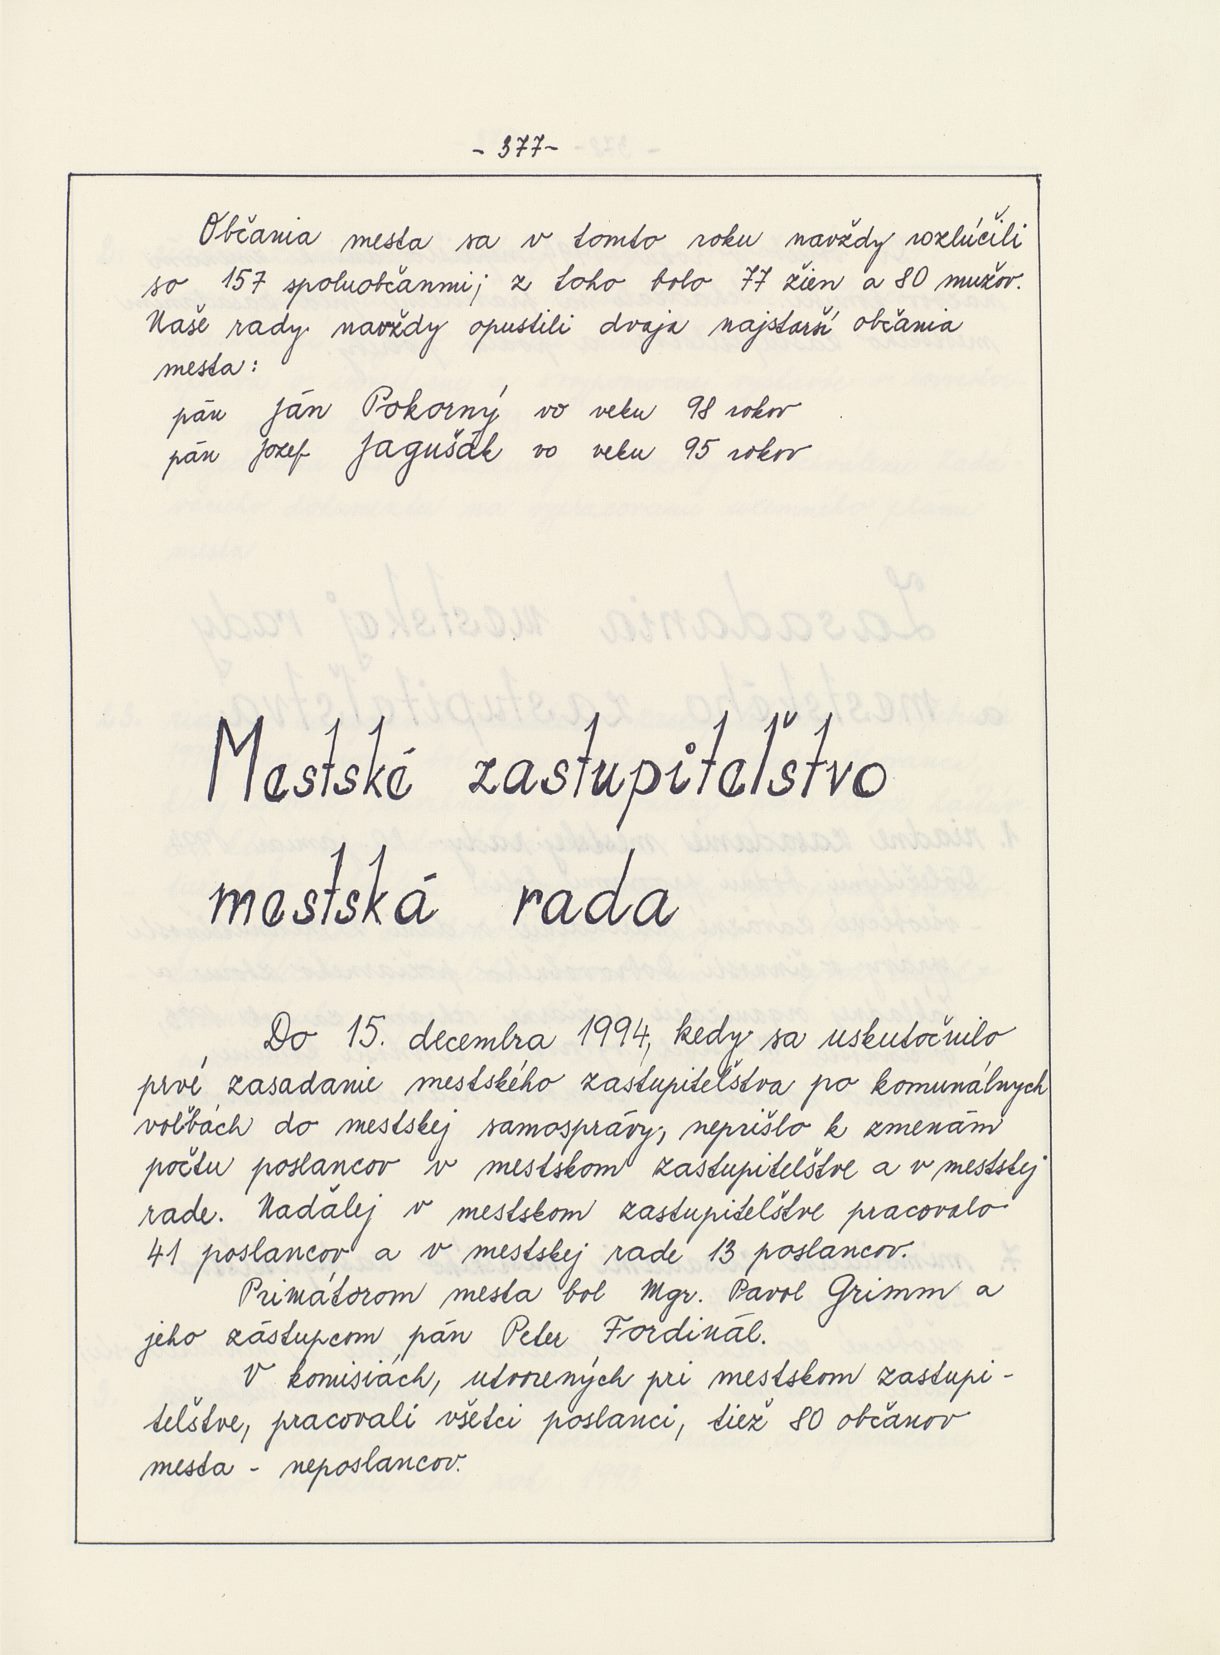 - 377 -
Občania mesta sa v tomto roku navždy rozlúčili
so 157 spoluobčanmi; z toho bolo 77 žien a 80 mužov.
Naše rady navždy opustili dvaja najstarší občania
mesta:
pán Ján Pokorný vo veku 98 rokov
pán Jozef Jagušák vo veku 95 rokov
Mestské zastupiteľstvo
mestská rada
Do 15. decembra 1994, kedy sa uskutočnilo
prvé zasadanie mestského zastupiteľštva po komunálnych
voľbách do mestskej samosprávy, neprišlo k zmenám
počtu poslancov v mestskom zastupitelštve a v mestskej
rade. Naďalej v mestskom zastupitelštve pracovalo
41 poslancov a v mestskej rade 13 poslancov.
Primátorom mesta bol Mgr. Pavol Grimm a
jeho zástupcom pán Peter Fordinál.
V komisiách, utvorených pri mestskom zastupi-
telštve, pracovali všetci poslanci, tiež 80 občanov
mesta - neposlancov.